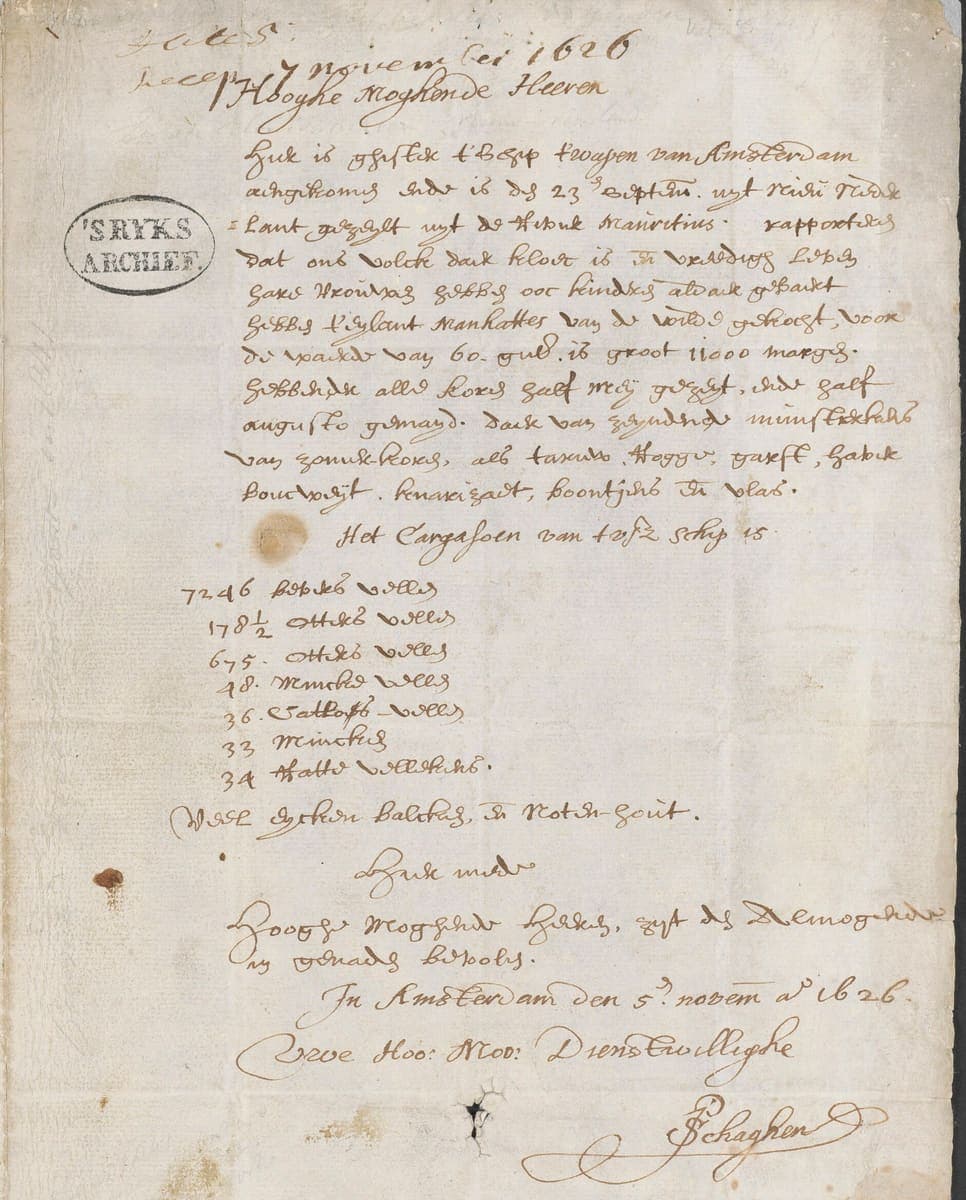 Recep. 7 november 1626
Hooghe Moghende Heeren
Hier is ghister t'Schip t'wapen van Amsterdam
aengekomen ende is den 23en Septem. uyt Nieu Neder
'SRYKS
ARCHIEF.
=lant gezeylt uyt de Rivier Mauritius. rapporteren
dat ons volck daer kloec is en vreedigh leven
hare Vrouwen hebben ooc kinderen aldaer gebaert
hebben t'eylant Manhattes van de wilde gekocht, voor
de waerde van 60. guld. is groot 11000 margen.
hebbende alle koren half Mey gezeyt, ende half
augusto gemayd. daer van zeyndende munsterkens
van zomerkoren, als tarruw, Rogge, garst, haver
boucweyt, knarizaet, boontjens en vlas.
Het Cargasoen van tvsz schip is
7246 bevers vellen
178½ Otters vellen
675. Otters vellen
48. Mincke vellen
36. Catloes vellen
33 Mincken
34 Ratte vellekens.
Veel eycken balcken, en Noten-hout.
Hier mede
Hooghe Moghende Heeren, zyt den Almogende
in genaden bevolen.
In Amsterdam den 5en novem ao 1626.
Uwe Hoo: Moo: Dienstwillighe
P Schaghen